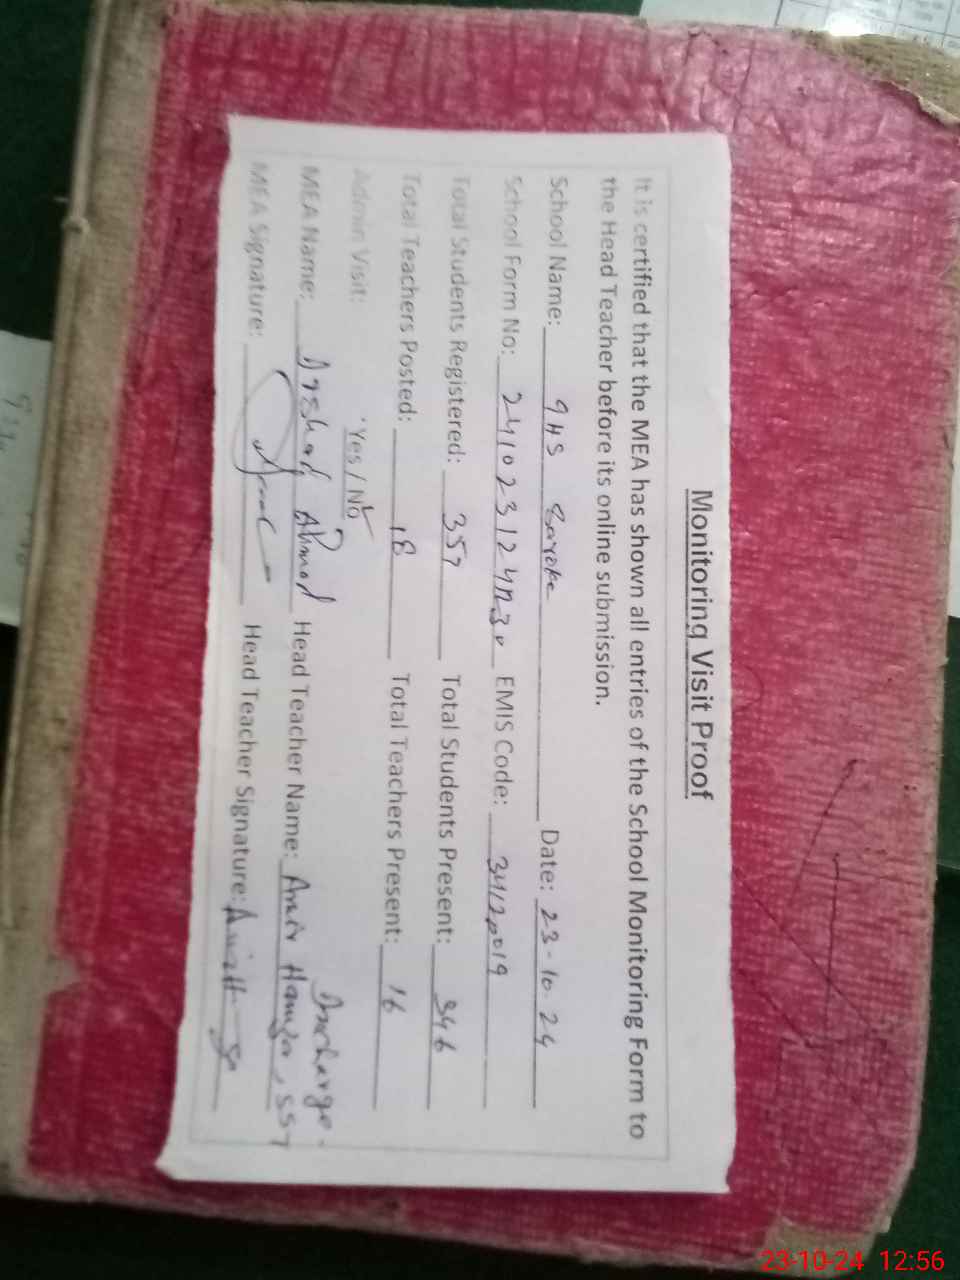 Monitoring Visit Proof
It is certified that the MEA has shown all entries of the School Monitoring Form to
the Head Teacher before its online submission.
School Name: GHS Saroke Date: 23-10-24
School Form No: EMIS Code: 34120019
Total Students Registered: 357 Total Students Present: 346
Total Teachers Posted: 18 Total Teachers Present: 16
Admin Visit: Yes / No
Incharge
MEA Name: Arshad Ahmad Head Teacher Name: Amir Hamza, SST
MEA Signature: Head Teacher Signature:
23-10-24 12:56